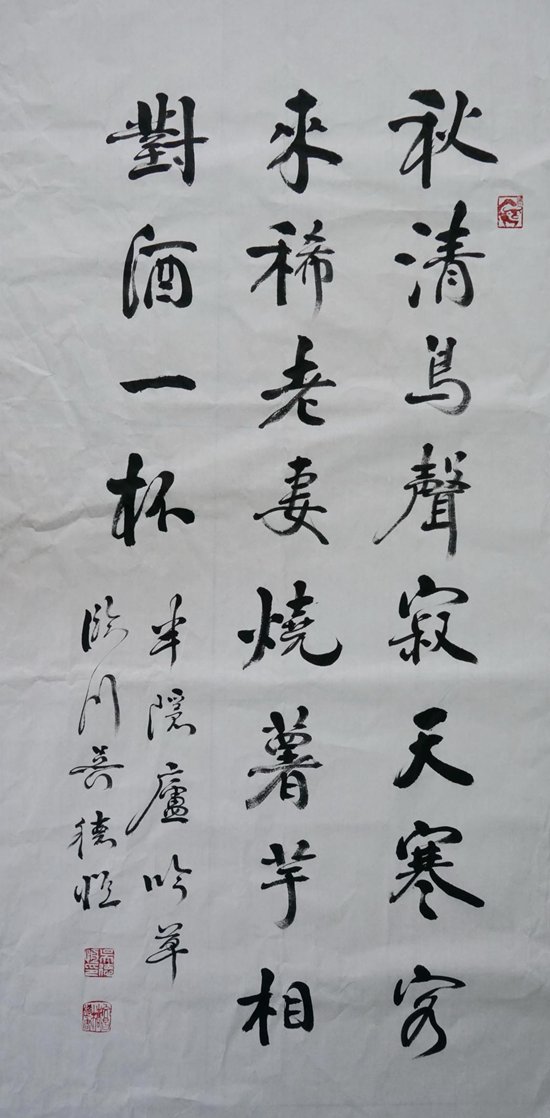 秋清鳥聲寂天寒客
來稀老妻燒薯芋相
對酒一杯
半隱廬吟草
臨川吳德恒